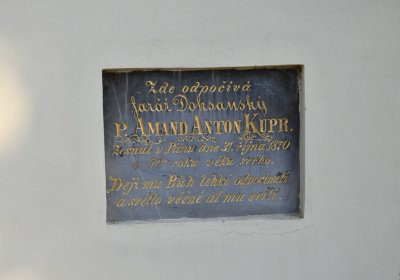 Zde odpočívá
farář Doksanský
P. AMAND ANTON KUPR.
Zesnul v Pánu dne 31. října 1870
v roku věku svého.
Dejž mu Bůh lehké odpočinutí
a světlo věčné ať mu svítí.